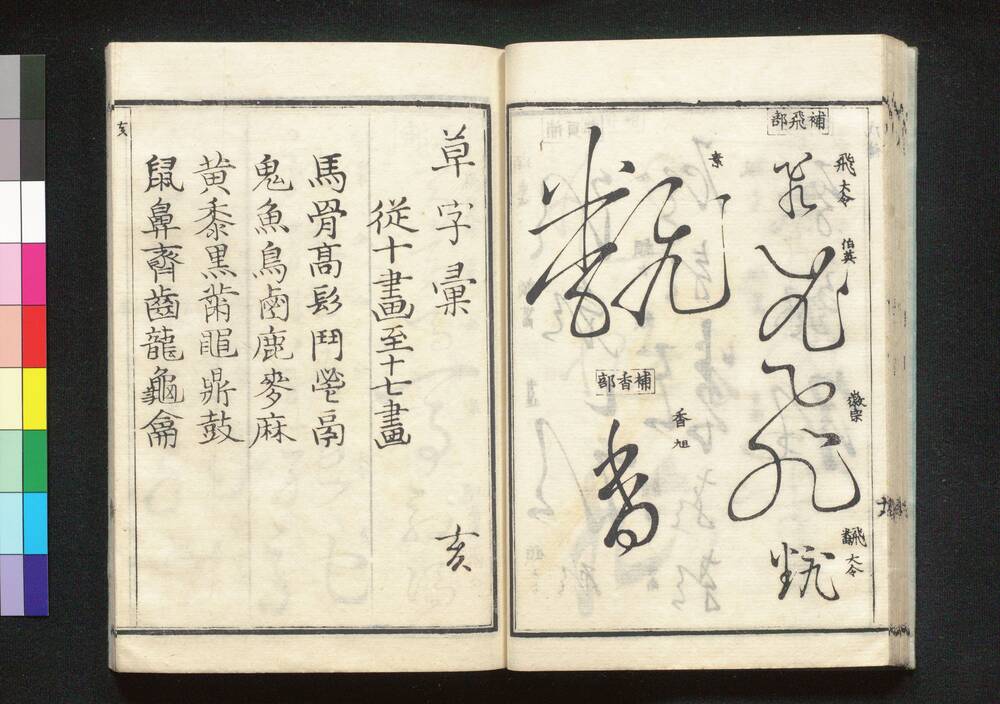 補飛部
飛 大令
飛
伯英
飛
徽宗
飛
飜 大令
飜
素
飜
補香部
香 旭
香
草字彙 亥
從十畫至十七畫
馬骨高髟鬥鬯鬲
鬼魚鳥鹵鹿麥麻
黄黍黑黹黽鼎鼓
鼠鼻齊齒龍龜龠
亥